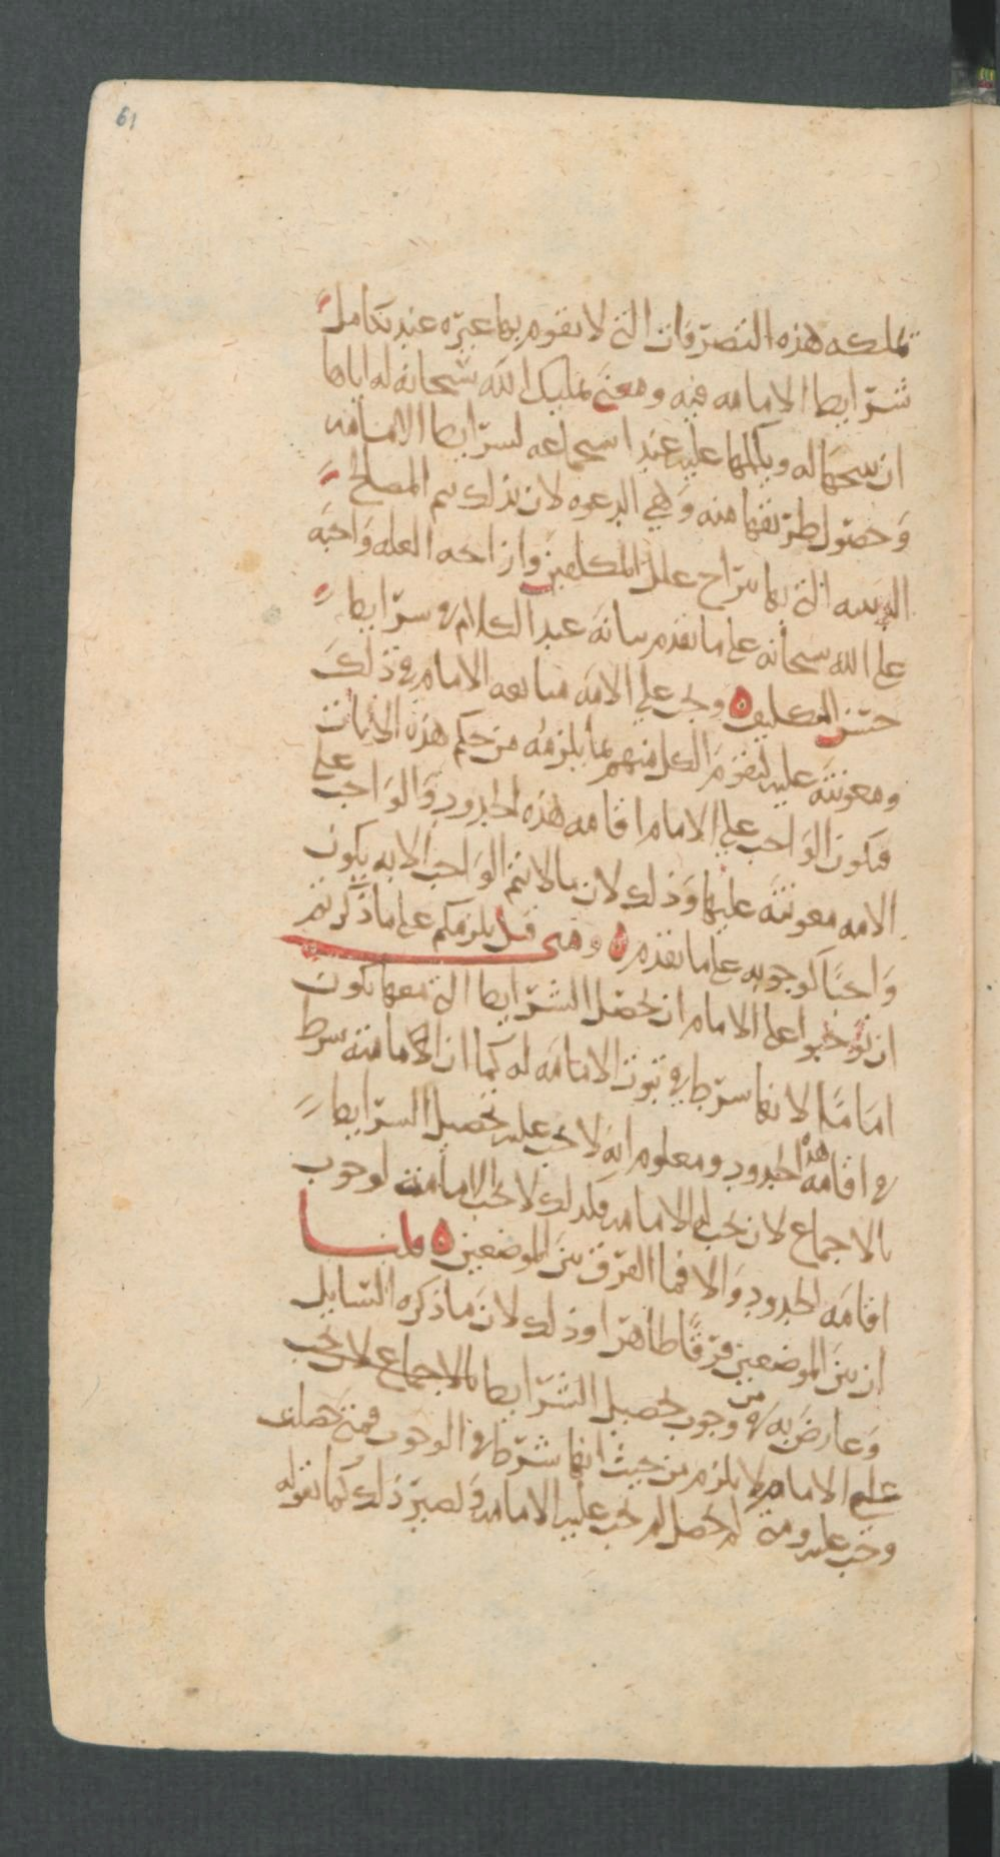 61
تملكه هذه التصرفات التي لا يقوم بها غيره عند تكامل
شرايط الامامه فيه ومعنى تمليك الله سبحانه له اياها
ان يبيحها له ويكلها عليه عند استجماعه لشرايط الامامه
وحصول طريقها منه وهي الدعوه لان بذلك تتم المصالح
التي بها تنزاح علل المكلفين وازاحه العله واجبه
على الله سبحانه على ما تقدم بيانه عند الكلام في شرايط
حسن التكليف ويجب على الامه متابعه الامام في ذلك
ومعونته عليه ليقوم الكل منهم بما يلزمه من حكم هذه الايات
فيكون الواجب على الامام اقامه هذه الحدود والواجب على
الامه معونته عليها وذلك لان ما لا يتم الواجب الا به يكون
واجبًا كوجوبه على ما تقدم ومتى قيل يلزمكم على ما ذكرتم
ان توجبوا على الامام ان يحصل الشرايط التي معها يكون
امامًا لانها شرط في ثبوت الامامه له كما ان الامامه شرط
في اقامه هذه الحدود ومعلوم انه لا يجب عليه تحصيل الشرايط
بالاجماع لان تجب له الامامه فكذلك لا تجب الامامه لوجوب
اقامه الحدود والا فما الفرق بين الموضعين قلنا
ان بين الموضعين فرقًا ظاهرا وذلك لان ما ذكره السايل
وعارض به في وجوب تحصيل الشرايط بالاجماع لا يجب
على الامام لا يلزم من حيث انها شرط في الوجوب فمتى حصلت
وجب عليه ومتى لم تحصل لم تجب عليه الامامه ويصير ذلك كما نقوله